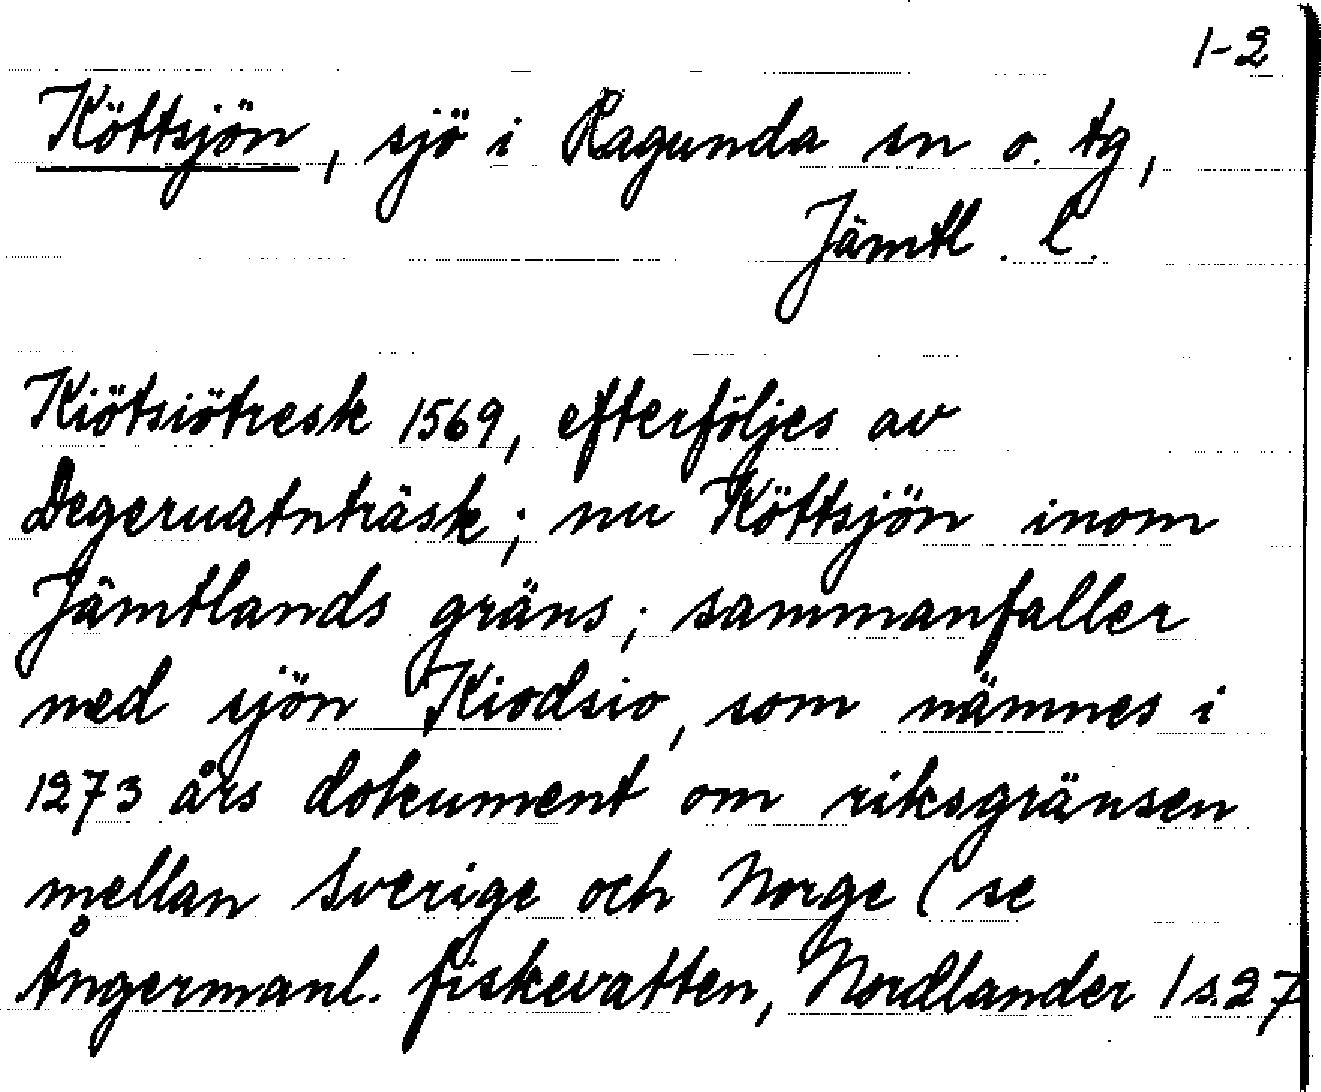 1-2
Köttsjön, sjö i Ragunda sn o. tg,
Jämtl. l.
Kiötsiötresk 1569, efterföljes av
Degeruatnträsk; nu Köttsjön inom
Jämtlands gräns; sammanfaller
med sjön Kiodsio, som nämnes i
1273 års dokument om riksgränsen
mellan Sverige och Norge (se
Ångermanl. fiskevatten, Nordlander 1 s. 27